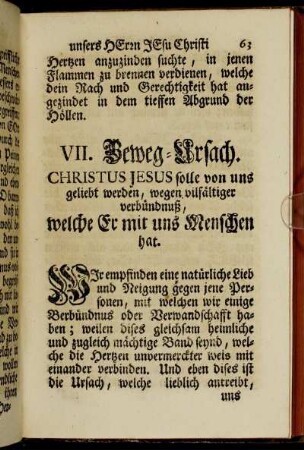 unsers HErrn JEsu Christi 63
Hertzen anzuzinden suchte, in jenen
Flammen zu brennen verdienen, welche
dein Rach und Gerechtigkeit hat an-
gezindet in dem tieffen Abgrund der
Höllen.
VII. Beweg-Ursach.
CHRISTUS JESUS solle von uns
geliebt werden, wegen vilfältiger
verbündnuß,
welche Er mit uns Menschen
hat.
WIr empfinden eine natürliche Lieb
und Neigung gegen jene Per-
sonen, mit welchen wir einige
Verbündnus oder Verwandschafft ha-
ben; weilen dises gleichsam heimliche
und zugleich mächtige Band seynd, wel-
che die Hertzen unvermerckter weis mit
einander verbinden. Und eben dises ist
die Ursach, welche lieblich antreibt,
uns